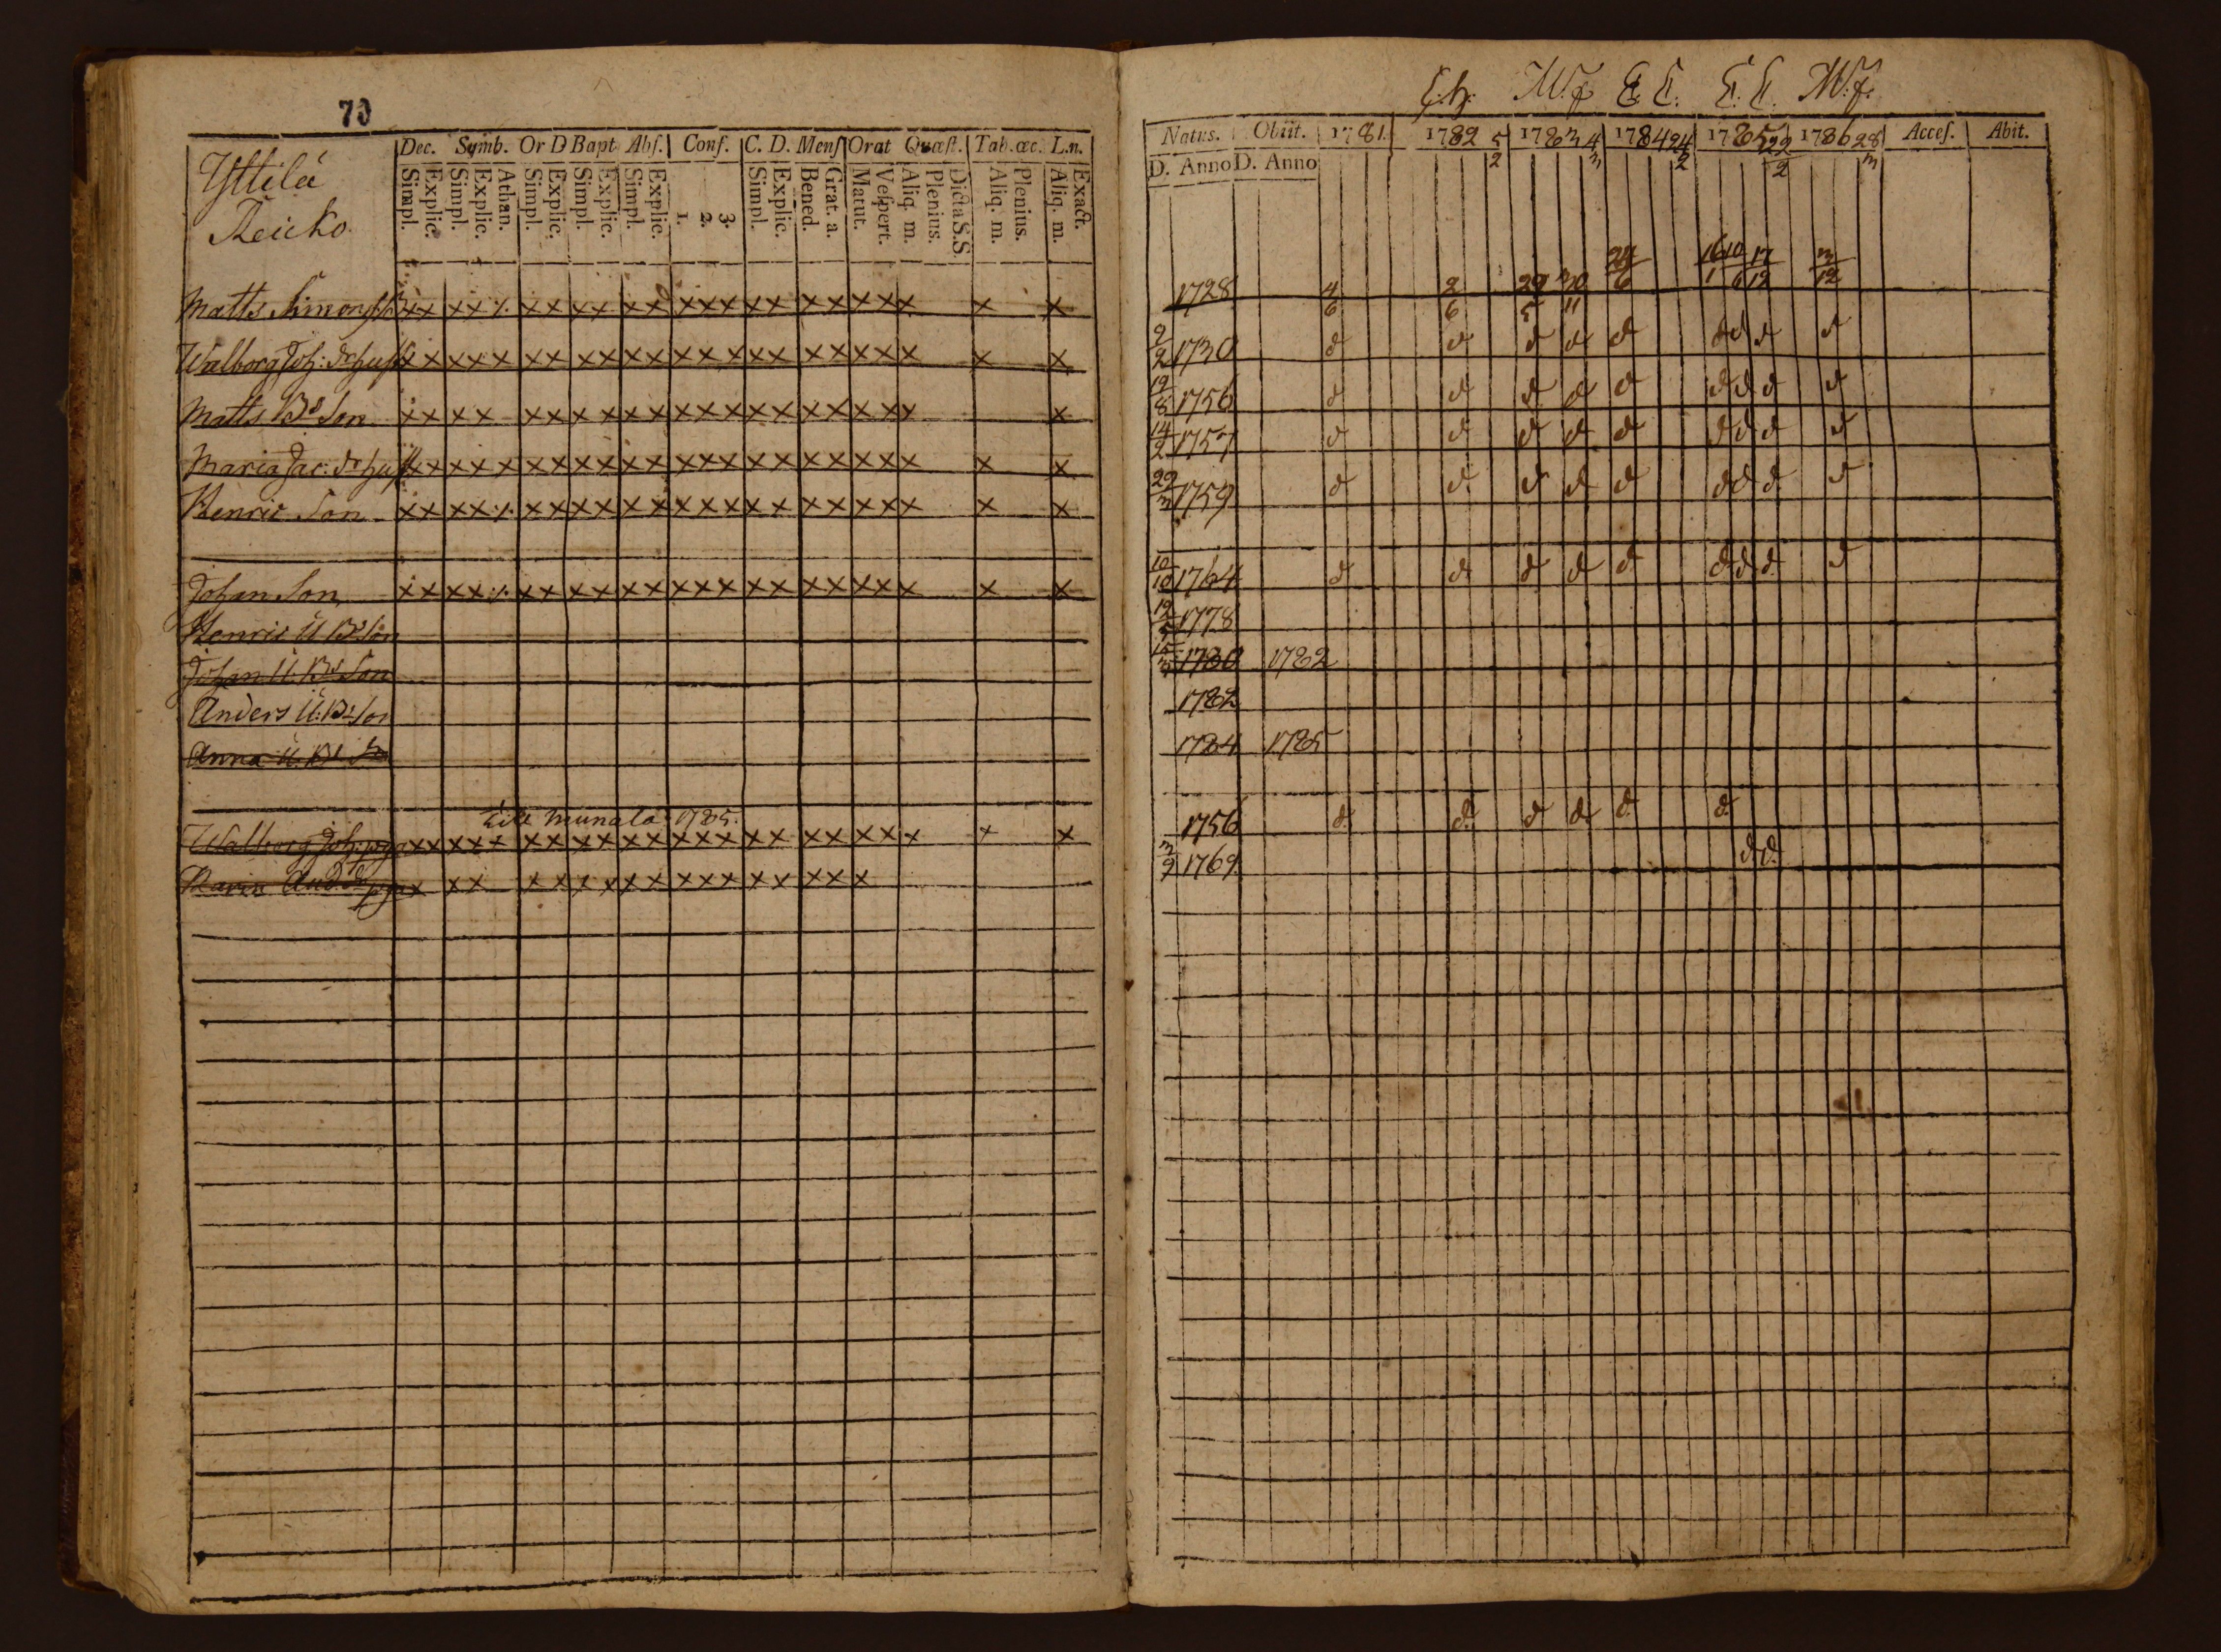 70
Dec. Symb. Or D Bapt Abs. Conf. C. D. Mens Orat Quæst. Tab. œc. L.n.
Simpl. Explic. Simpl. Explic. Athan. Simpl. Explic. Simpl. Explic. Simpl. Explic. 1. 2. 3. Simpl. Explic. Bened. Grat. a. Matut. Vespert. Aliq. m. Plenius. Dicta S.S Aliq. m. Plenius. Aliq. m. Exact.
Yttilä
Reicko
Matts Simonss. x x x x x x x x x x x x x x x x x x x x x x
Walborg Joh: dr hust x x x x x x x x x x x x x x x x x x x x x x
Matts Bd Son x x x x x x x x x x x x x x x x x x x x x
Maria Jac: dr hust x x x x x x x x x x x x x x x x x x x x x x
Henric Son x x x x x x x x x x x x x x x x x x x x x x
Johan Son x x x x x x x x x x x x x x x x x x x x x x
Henric U Bds Son
Johan U. Bds Son
Anders U. Bds Son
Anna U. Bds
munala 1785.
Walborg Joh: pga x x x x x x x x x x x x x x x x x x x x x
Karin And. dr pga x x x x x x x x x x x x x x x x
M.f. E. E. E. E. M.f.
Natus. Obiit. 1781. 1782 5/2 1783 4/3 1784 24/2 1785 22/2 1786 28/3 Acces. Abit.
D. Anno D. Anno
1728 4/6 2/6 29/5 30/11 24/6 16/1 10/6 17/12 3/12
2/2 1730 d d d d d d d d d
12/8 1756 d d d d d d d d d
14/2 1757 d d d d d d d d d
29/3 1759 d d d d d d d d d
10/10 1764 d d d d d d d d d
1778
15/3 1780 1782
1782
1784 1785
1756 d d. d d d. d.
3/9 1769. d d.